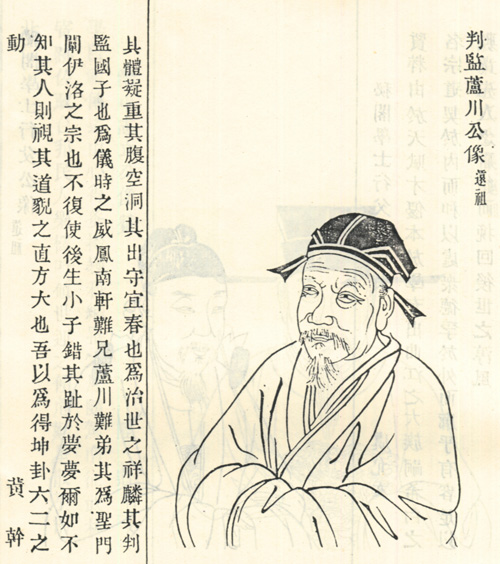 判監蘆川公像 遠祖
具體凝重其腹空洞其出守宜春也爲治世之祥麟其判
監國子也爲儀時之威鳳南軒難兄蘆川難弟其爲聖門
闡伊洛之宗也不復使後生小子錯其趾於夢夢爾如不
知其人則視其道貌之直方大也吾以爲得坤卦六二之
動
黄榦